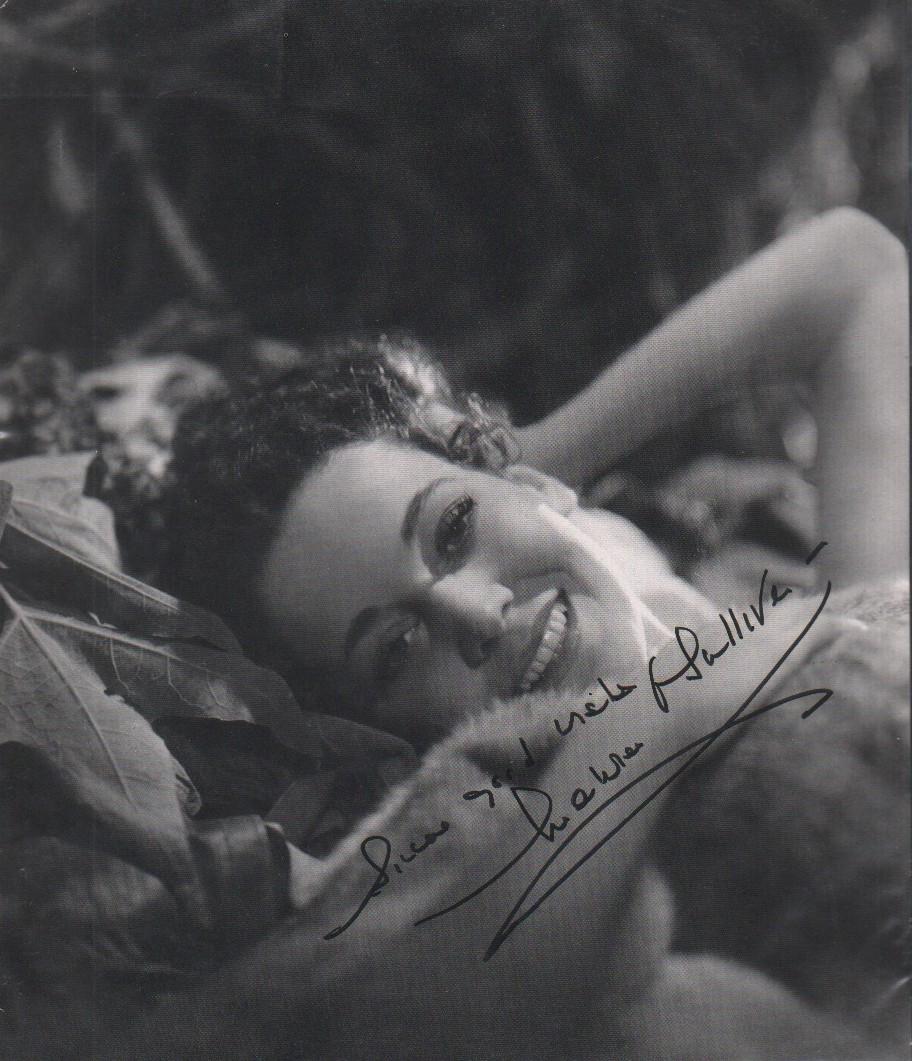 Sincere good wishes
Maureen O'Sullivan